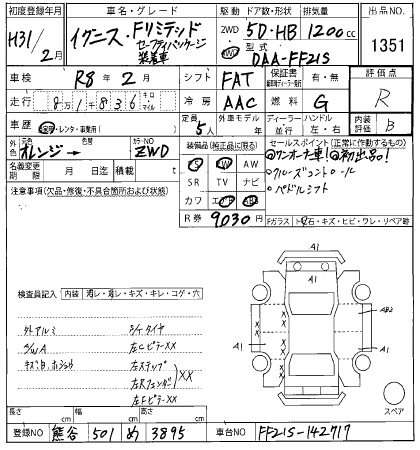 初度登録年月 車名・グレード 駆動 ドア数・形状 排気量 出品NO.
H31/2月 イグニス・Fリミテッド 2WD 5D・HB 1200cc 1351
セーフティパッケージ
装着車 型式 DAA-FF21S
車検 R8年2月 シフト FAT 保証書 有・無 評価点
走行 8万1千836 キロ マイル 冷房 AAC 燃料 G R
車歴 自家・レンタ・事業用( ) 定員 5人 外車モデル 年 ディーラー 並行 ハンドル 左・右 内装 B
外色 元色 オレンジ→ 色替 カラーNO ZWD 装備品(純正品に限る) セールスポイント(正常に作動するもの)
PS PW AW @ワンオーナー車!@初出品!
名義変更期限 月 日 積載 t SR TV ナビ ・クルーズコントロール
注意事項(欠品・修復・不具合箇所および状態) カワ エアB ABS ・パドルシフト
R券 9030円 Fガラス トビ石・キズ・ヒビ・ワレ・リペア跡
A1
検査員記入 内装 汚レ・凍レ・キズ・キレ・コゲ・穴
外アルミ タイヤ AB2
S/WA 左Cピラーxx
左ステップ
左Rフェンダー xx
左Fピラーxx
A1 A1
A1
スペア
長さ cm 幅 cm 高さ cm
登録NO 熊谷 501 め 3895 車台NO FF21S-142717